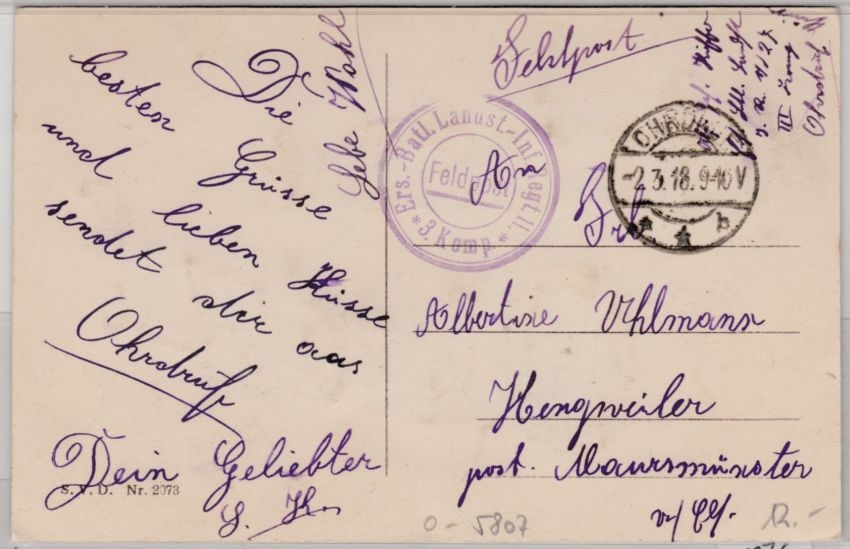 Die
besten Grüsse
und lieben Küsse
sendet dir aus
Ohrdruf
Dein Geliebter
Lebe Wohl
S.V.D. Nr. 2073
Feldpost
Ers.-Batl. Landst.-Inf. Regt. 11.
Feldpost
* 3. Komp. *
OHRDRUF
-2.3.18.9-10V
* * b
III Komp
Ohrdruf
An
Frl.
Albertine Uhlmann
Hengweiler
post. Maursmünster
0 - 5807
12.-